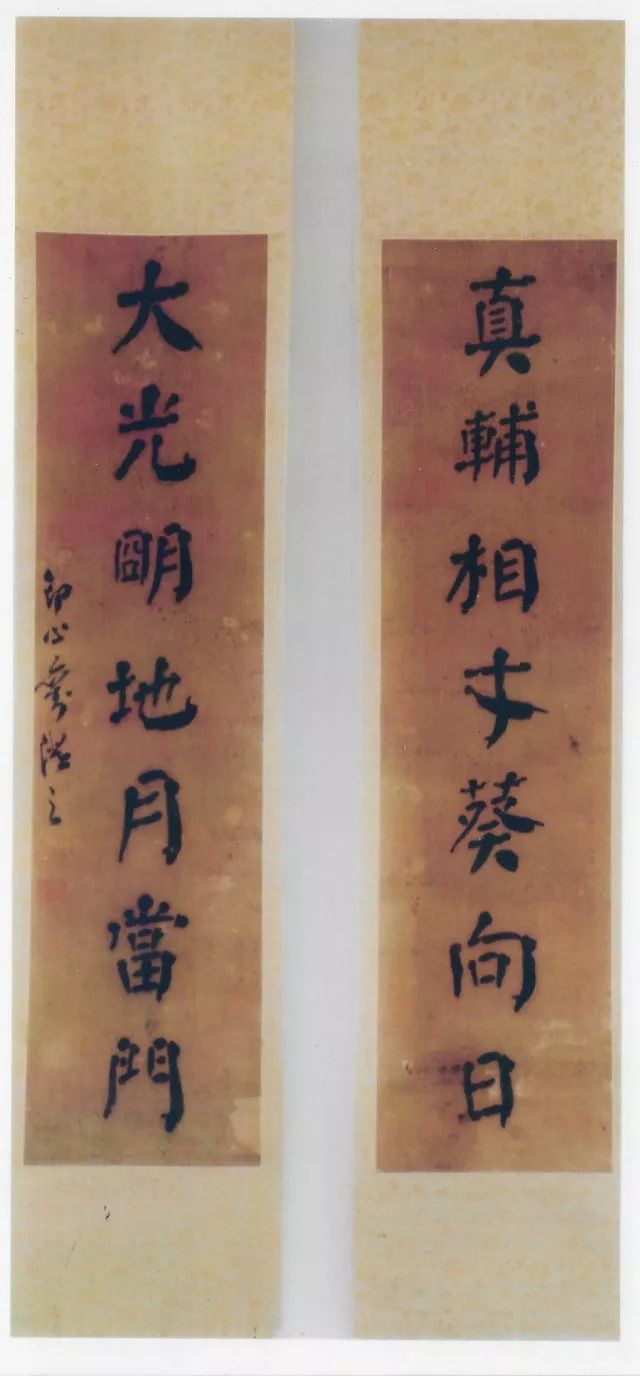 真輔相才葵向日
大光明地月當門
印心齋濤之